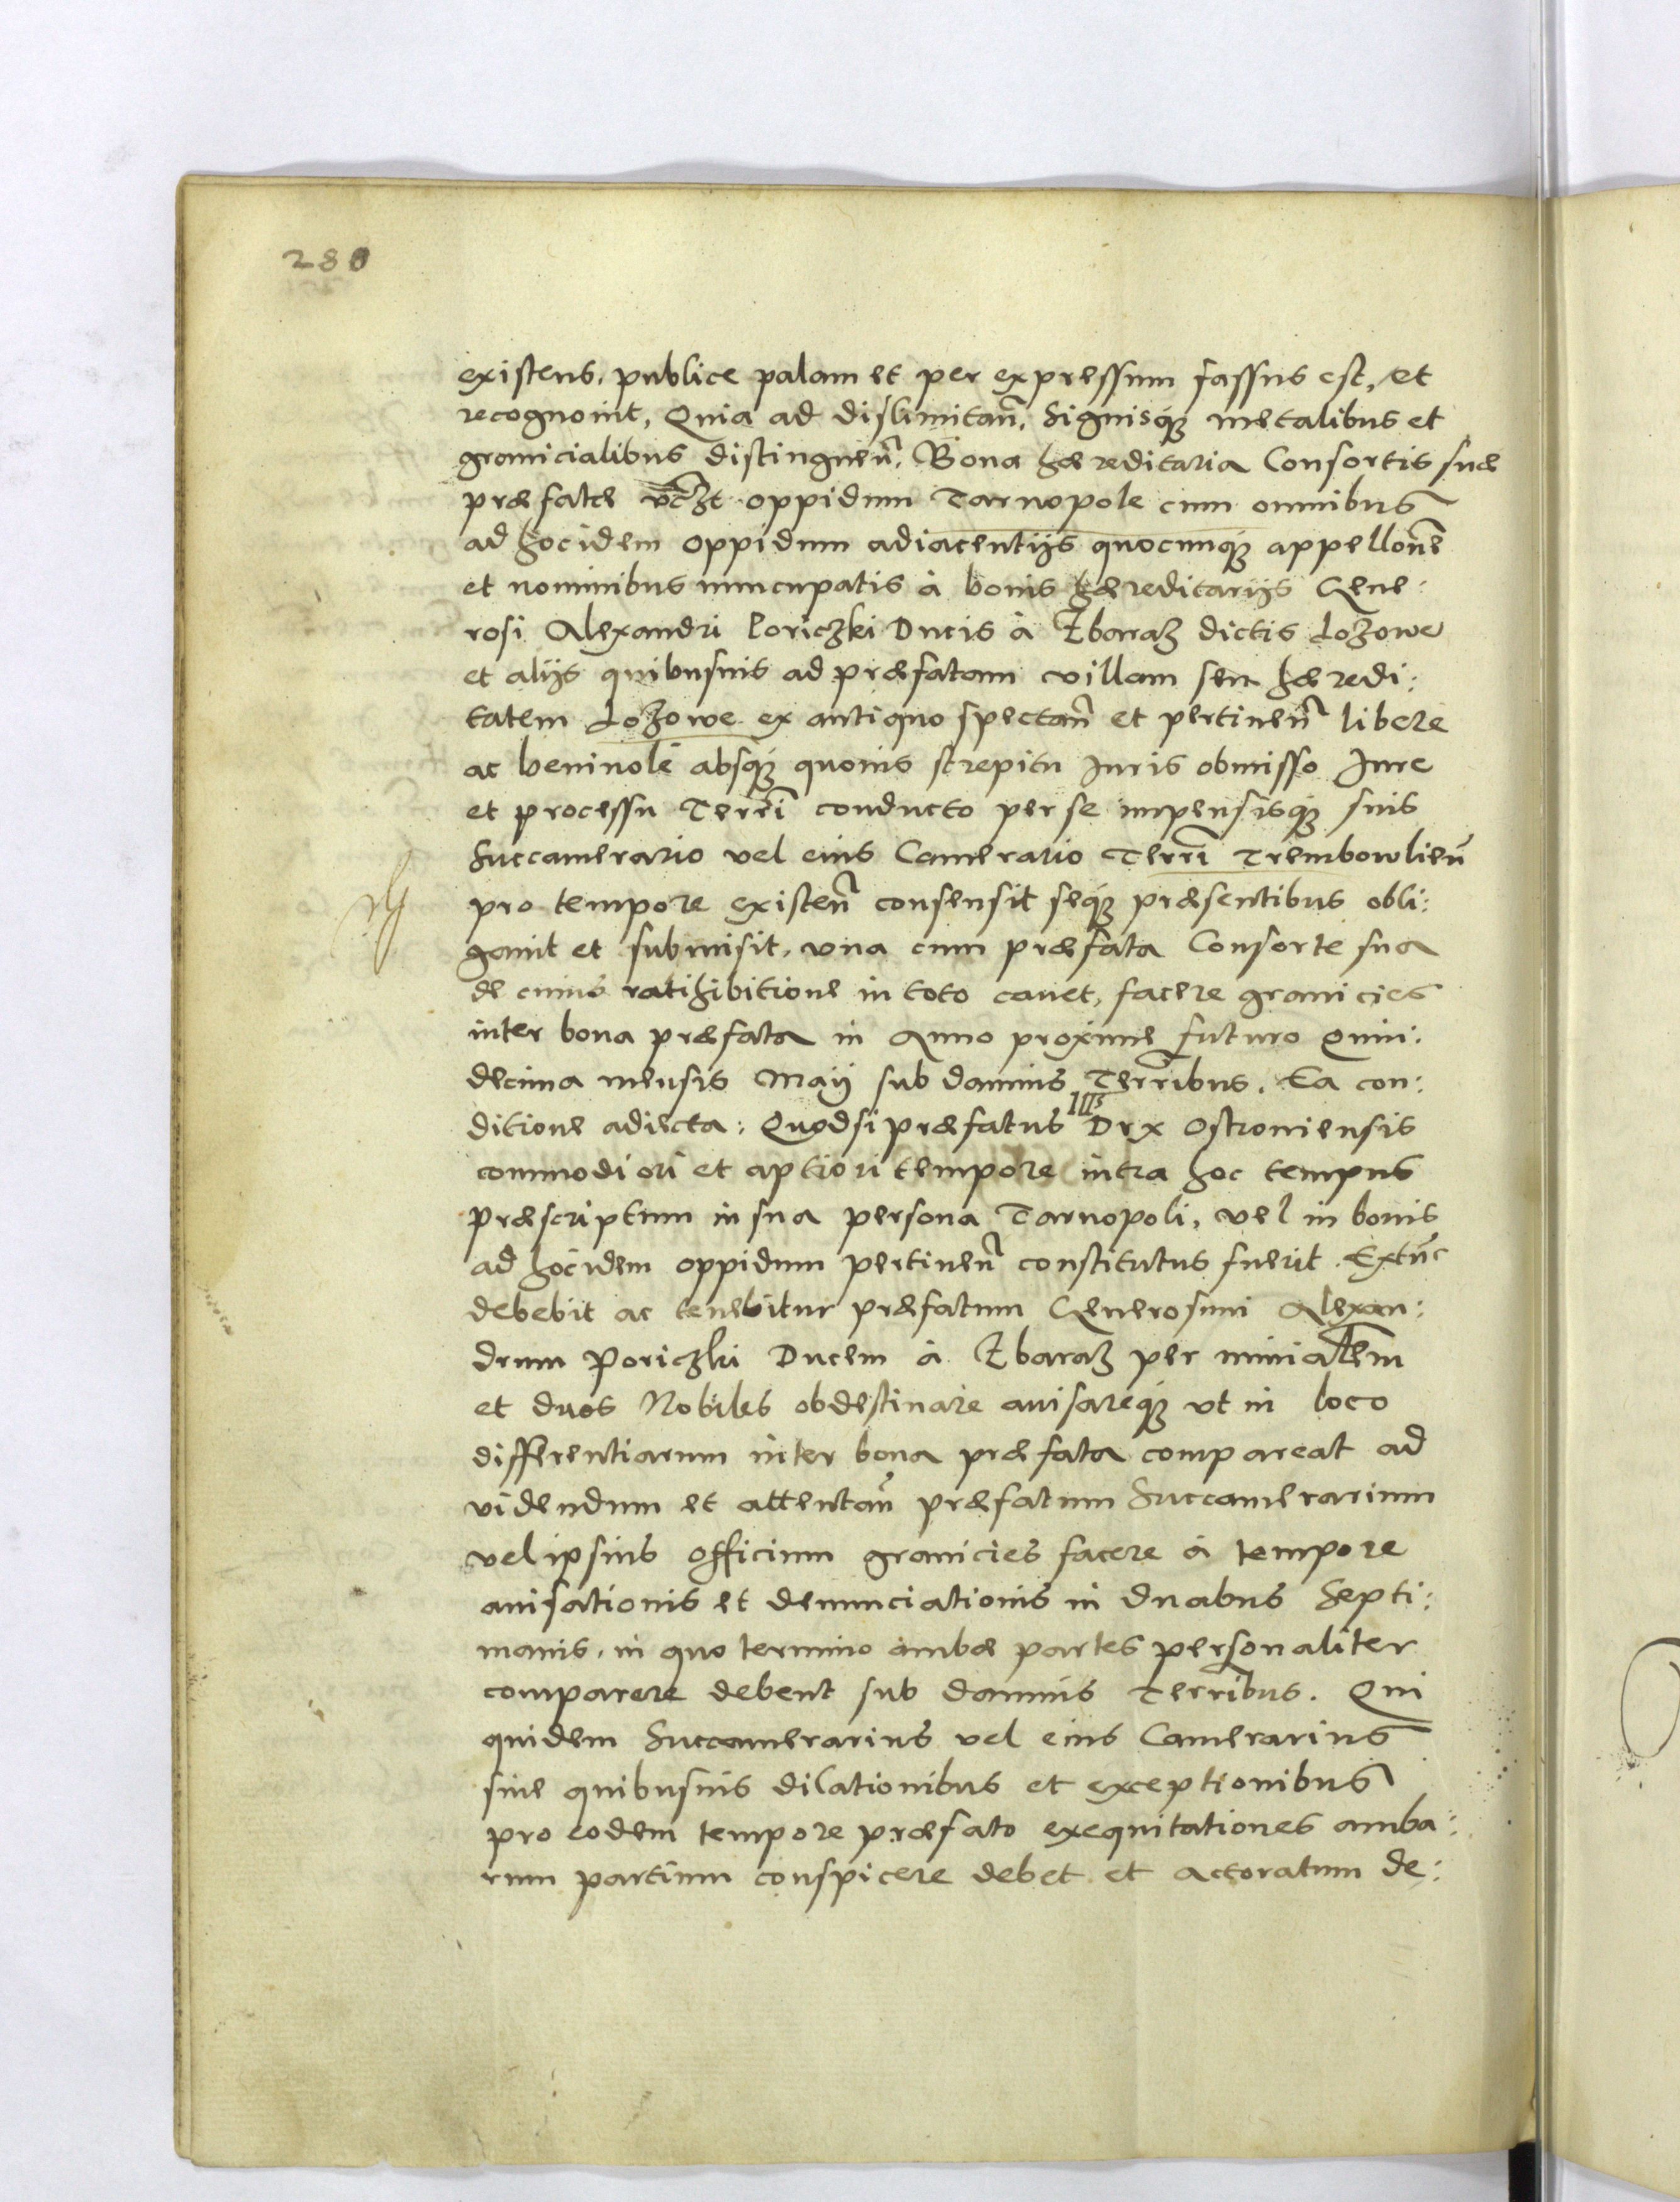 280
existens, publice palam et per expressum fassus est, et
recognouit, Quia ad dislimitan̄, signisq́ꝫ metalibus et
granicialibus distinguen̄, Bona hæreditaria Consortis suæ
præfatæ vc̄ꝫt oppidum Tarnopole cum omnibus
ad hoc idem oppidum adiacentijs quocunq́ꝫ appellon̄e
et nominibus nuncupatis à bonis hæreditarijs Gene:
rosi Alexandri Poriczki Ducis à Zbaraȝ dictis Loȝowe
et alijs quibusuis ad præfatam villam seu hæredi:
tatem Loȝowe ex antiquo spectan̄ et pertinen̄ libere
ac beniuole absq́ꝫ quouis strepitu Iuris obmisso Iure
et processu Terrī conducto per se impensisq́ꝫ suis
Succamerario vel eius Camerario Terrī Trembowlien̄
pro tempore existen̄ consensit seq́ꝫ præsentibus obli:
gauit et submisit, vna cum præfata Consorte sua
de cuius ratihibitione in toto cauet, facere granicies
inter bona præfata in Anno proxime futuro Quin:
decima mensis Maij sub damnis Terrībus. Ea con:
ditione adiecta: Quodsi præfatus Illꝰ Dux Ostrouiensis
commodiori et aptiori tempore intra hoc tempus
præscriptum in sua persona Tarnopoli, vel in bonis
ad hoc idem oppidum pertinen̄ constitutus fuerit. Extūc
debebit ac tenebitur præfatum Generosum Alexan:
drum Poriczki Ducem à Zbaraȝ per miniatl̄em
et duos Nobiles obdestinare auisareq́ꝫ vt in loco
differentiarum inter bona præfata compareat ad
videndum et attentan̄ præfatum Succamerarium
vel ipsius officium granicies facere à tempore
auisationis et denunciationis in duabus Septi:
manis, in quo termino ambæ partes personaliter
comparere debent sub damnis Terrībus. Qui
quidem Succamerarius vel eius Camerarius
siue quibusuis dilationibus et exceptionibus
pro eodem tempore præfato exequitationes amba:
rum partium conspicere debet et actoratum de: